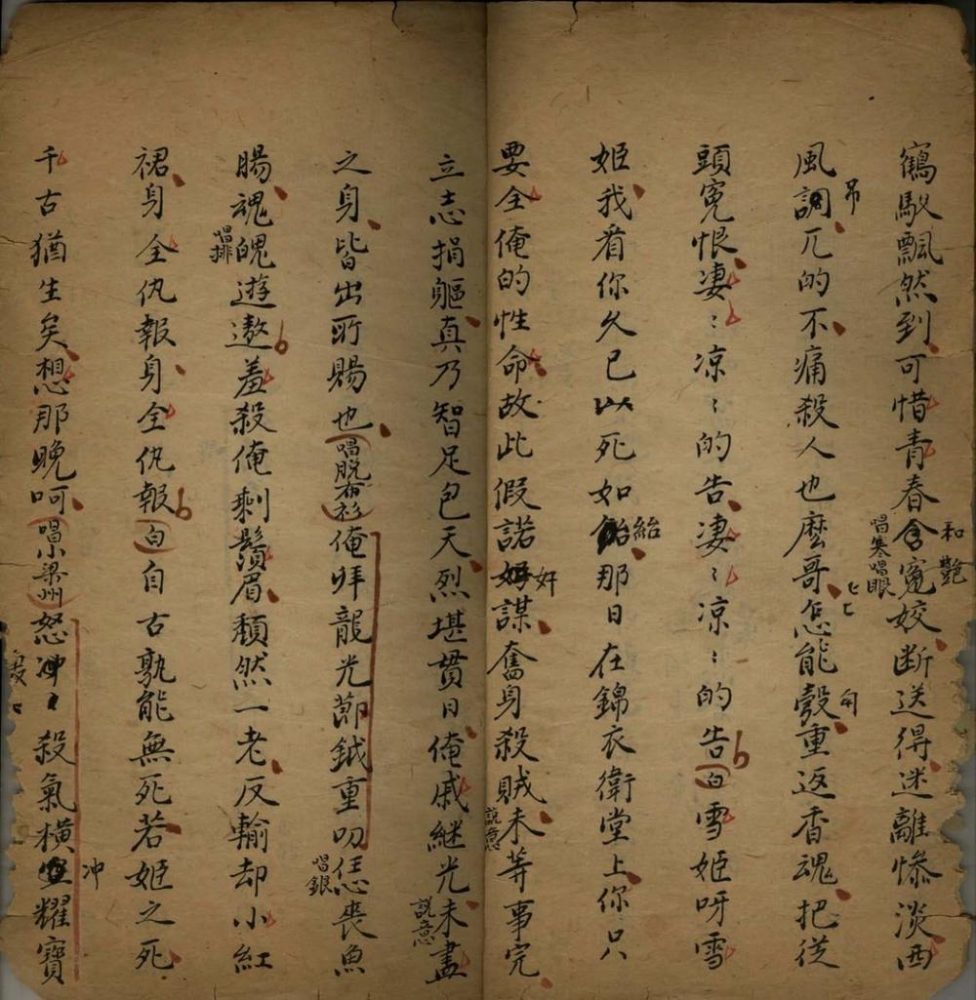 鶴馭飄然到可惜青春含寃姣断送得迷離慘淡西
和艷
唱寒唱眼
風調兀的不痛殺人也麽哥怎能彀重返香魂把従
吊
匕匕
勾
頭寃恨凄〻凉〻的告凄〻凉〻的告(白)雪姬呀雪
姬我看你久已以死如飴那日在錦衣衛堂上你只
紿
要全俺的性命故此假諾奸謀奮身殺賊未等事完
奸
説意
立志捐軀真乃智足包天烈堪貫日俺戚継光未盡
説意
之身皆出所賜也(唱脱布衫)俺拜龍光節鉞重叨恁丧魚
唱銀
腸魂魄遊遨羞殺俺剩鬚眉頽然一老反輸却小紅
唱排
裙身全仇報身全仇報(白)自古孰能無死若姬之死
千古猶生矣想那晚呵(唱小梁州)怒冲〻殺氣横空耀寶
冲